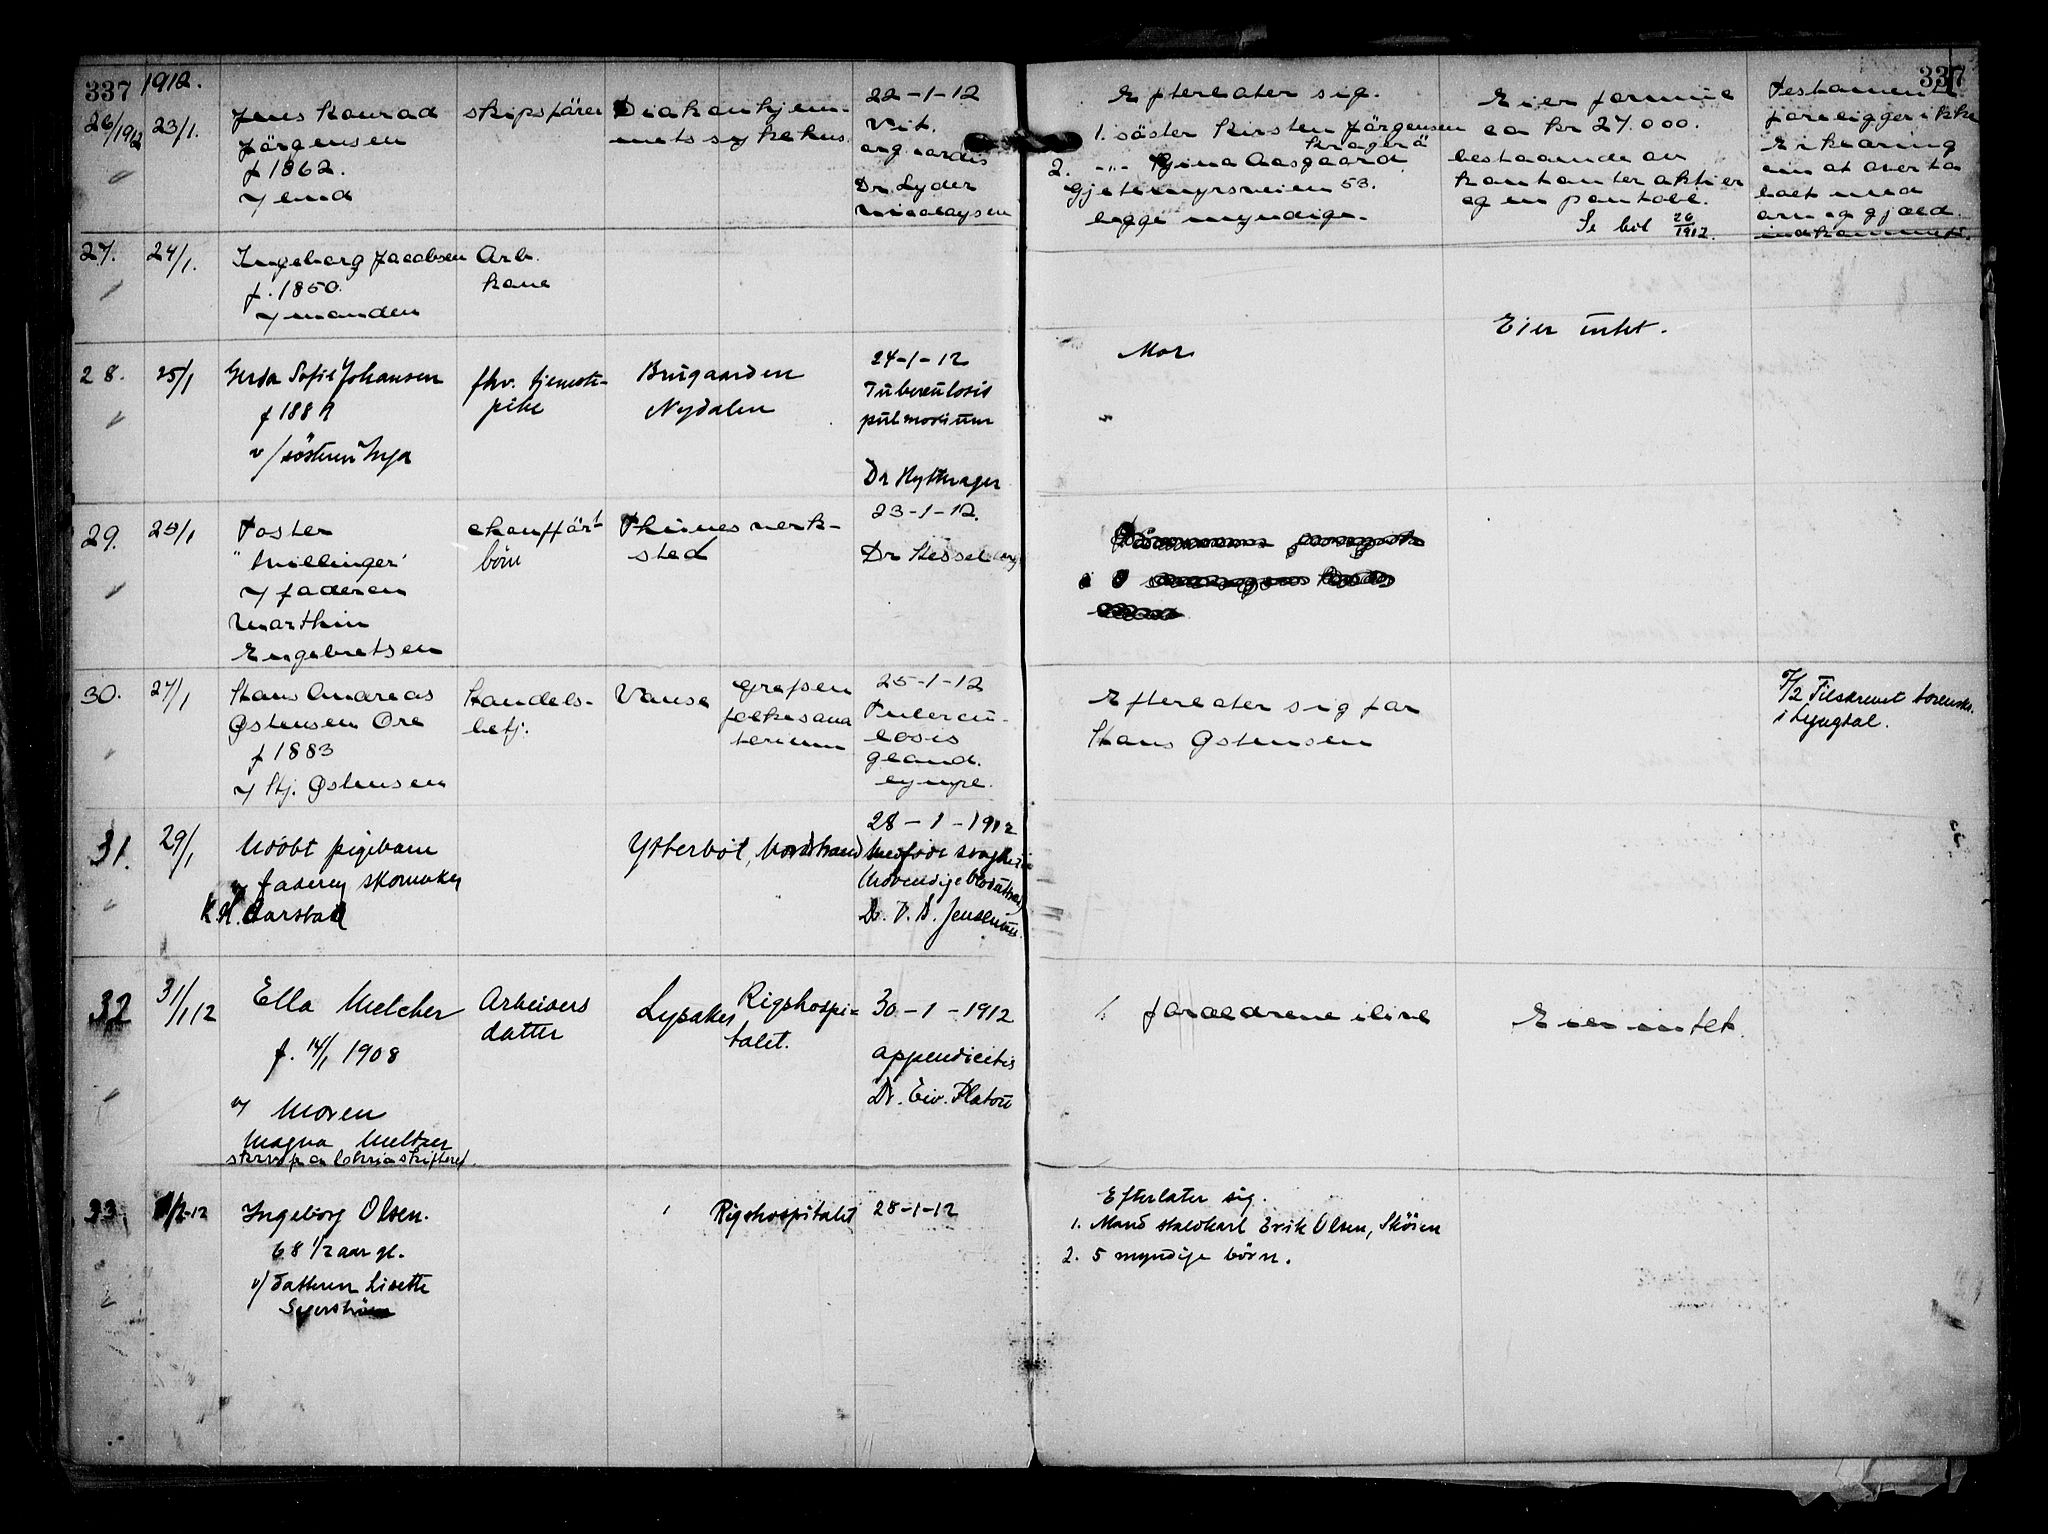 337
1912.
337
26/1912
23/1.
Jens Konrad
Jörgensen
f 1862.
v/ lmd
skipsförer
Diakonhjem-
mets sykehus.
22-1-12
Vit.
org. cordis
Dr. Lyder
Nicolaysen
Efterlater sig.
1. söster Kirsten Jörgensen
Kragerö
2. -"- Gina Aasgaard
Gjetemyrsveien 53.
begge myndige.
Eier formue
ca kr 27.000.
bestaaende av
kontanter aktier
og en pantobl.
Se bol 26/1912.
Testament
foreligger ikke
Erklæring
om at overta
boet med
arv og gjæld
indkommet.
27.
24/1.
Ingeborg Jacobsen
f. 1850.
v/ manden
Arb.
kone
28.
25/1
Gerda Sofie Johansen
f 1889
v/ søsteren Inga
fhv. tjeneste-
pike
Brugaarden
Nydalen
24-1-12
Tuberculosis
pulmonum
Dr Hytterager
Mor
Eier intet.
29.
25/1
Foster
"Tvillinger"
v/ faderen
Marthin
Engebretsen
chaufför
börn
Thunes verk-
sted
23-1-12.
Dr Hesselberg
30.
27/1
Hans Andreas
Østensen Ore
f 1883
v/ Hj. Østensen
Handels-
betj.
Vanse
Grefsen
folkesana
torium
25-1-12
Tubercu-
losis
gland.
lymph.
Efterlater sig far
Hans Østensen
/2 Tilskrevet sorensk.
i Lyngdal.
31.
29/1
Udöbt pigebarn
v/ faderen skomaker
K. H. Aarstad
Ysterbøl, Nordstrand
28-1-1912
Medfödt svaghet
Indvendige bloduttræd
Dr. V. B. Jensenius.
32
31/1 12
Ella Melcher
f. 14/1 1908
v/ Moren
Magna Meltzer
skrevs fra Chria skifteret.
Arbeiders
datter
Lysaker
Rigshospi-
talet.
30-1-1912
appendicitis
Dr. Eiv. Platou
forældrene ilive
Eier intet.
33
1/2-12
Ingeborg Olsen.
68 1/2 aar gl.
v/ datteren Lisette
Segerström
Rigshospitalet
28-1-12
Efterlater sig.
1. Mand staldkarl Erik Olsen, Sköien
2. 5 myndige börn.